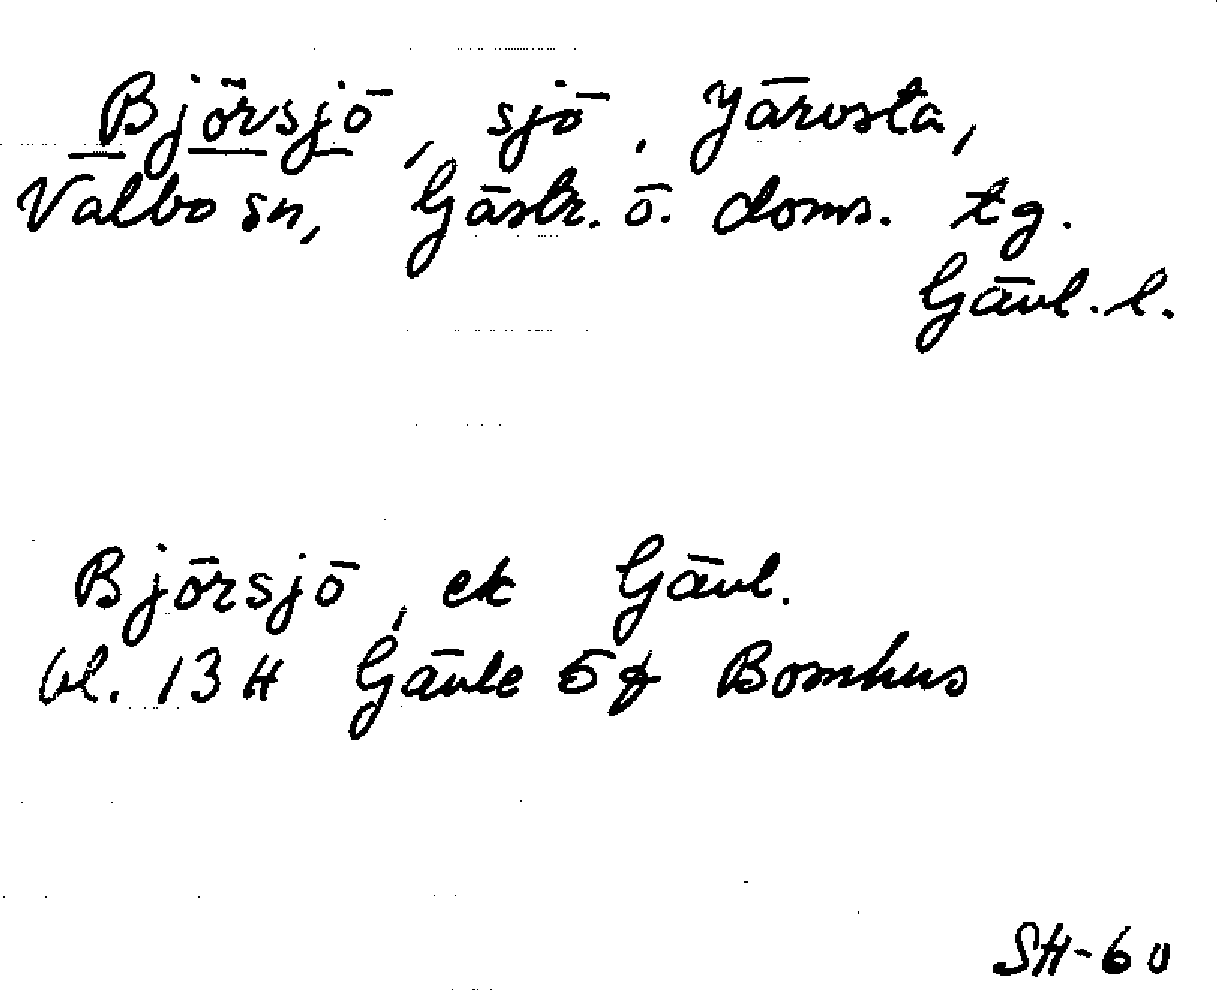 Björsjö, sjö. Järvsta,
Valbo sn, Gästr. ö. doms. tg.
Gävl. l.
Björsjö, ek Gävl.
bl. 13 H Gävle 5 f Bomhus
SH-60